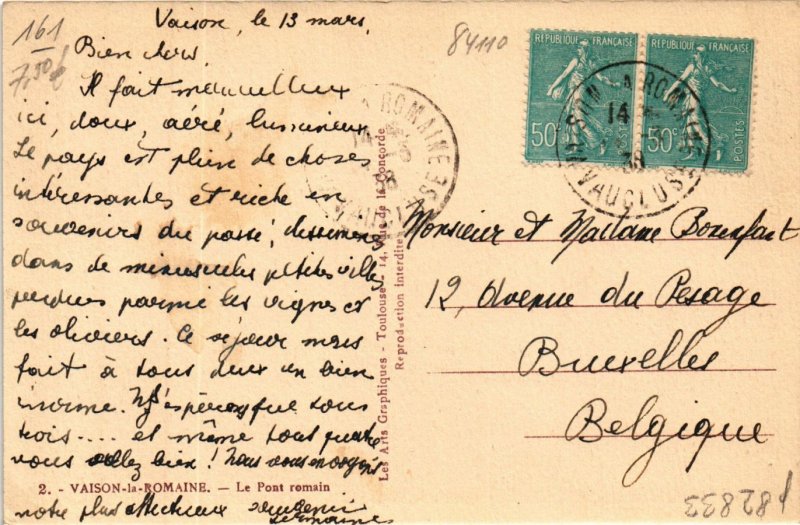 161
7,50f
84110
Vaison, le 13 mars,
Bien chers,
Il fait merveilleux
ici, doux, aéré, lumineux
Le pays est plein de choses
intéressantes et riche en
souvenirs du passé,
dans de minuscules petites villes
perdues parmi les vignes et
les oliviers. Ce séjour nous
fait à tous deux un bien
énorme. Ns espérons que tous
trois .... et même tous quatre
vous allez bien ! Nous vous envoyons
notre plus affectueux souvenir
2. - VAISON-la-ROMAINE. — Le Pont romain
Les Arts Graphiques - Toulouse - 14, Rue de la Concorde
Reproduction interdite
RÉPUBLIQUE FRANÇAISE
50c
POSTES
RÉPUBLIQUE FRANÇAISE
50c
POSTES
VAISON LA ROMAINE
14
38
VAUCLUSE
Monsieur et Madame Bonenfant
12, Avenue du Pesage
Bruxelles
Belgique
182833